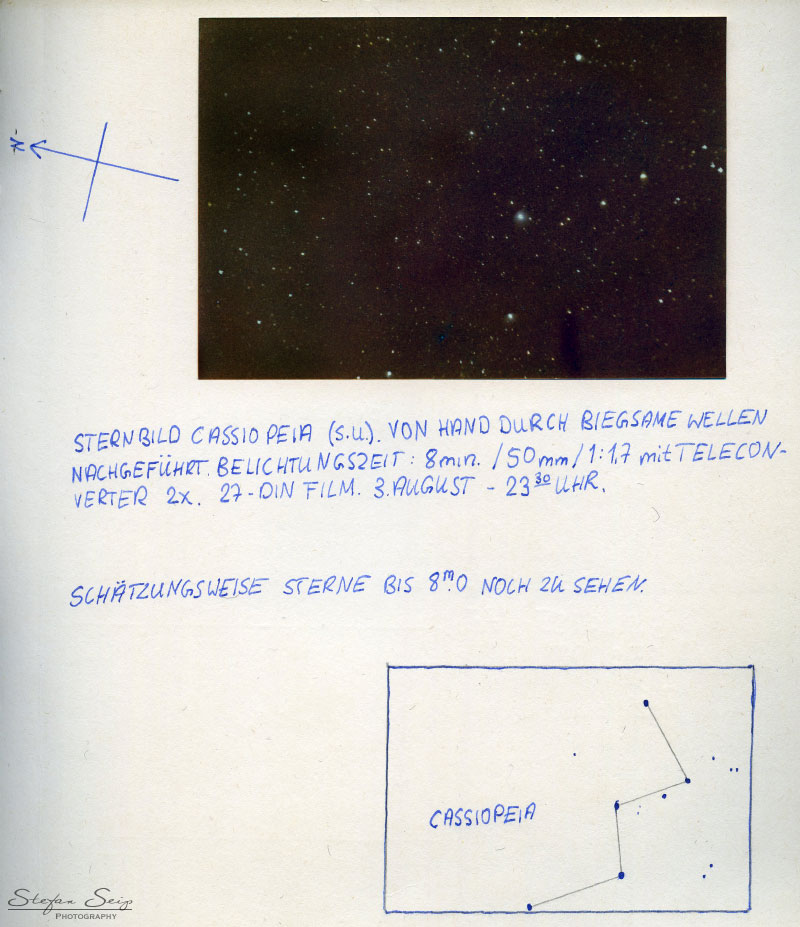 N
STERNBILD CASSIOPEIA (s.u.). VON HAND DURCH BIEGSAME WELLEN
NACHGEFÜHRT. BELICHTUNGSZEIT: 8min. / 50mm / 1:1,7 mit TELECON-
VERTER 2x. 27-DIN FILM. 3. AUGUST - 23³⁰ UHR.
SCHÄTZUNGSWEISE STERNE BIS 8ᵐ.0 NOCH ZU SEHEN.
CASSIOPEIA
Stefan Seip
PHOTOGRAPHY